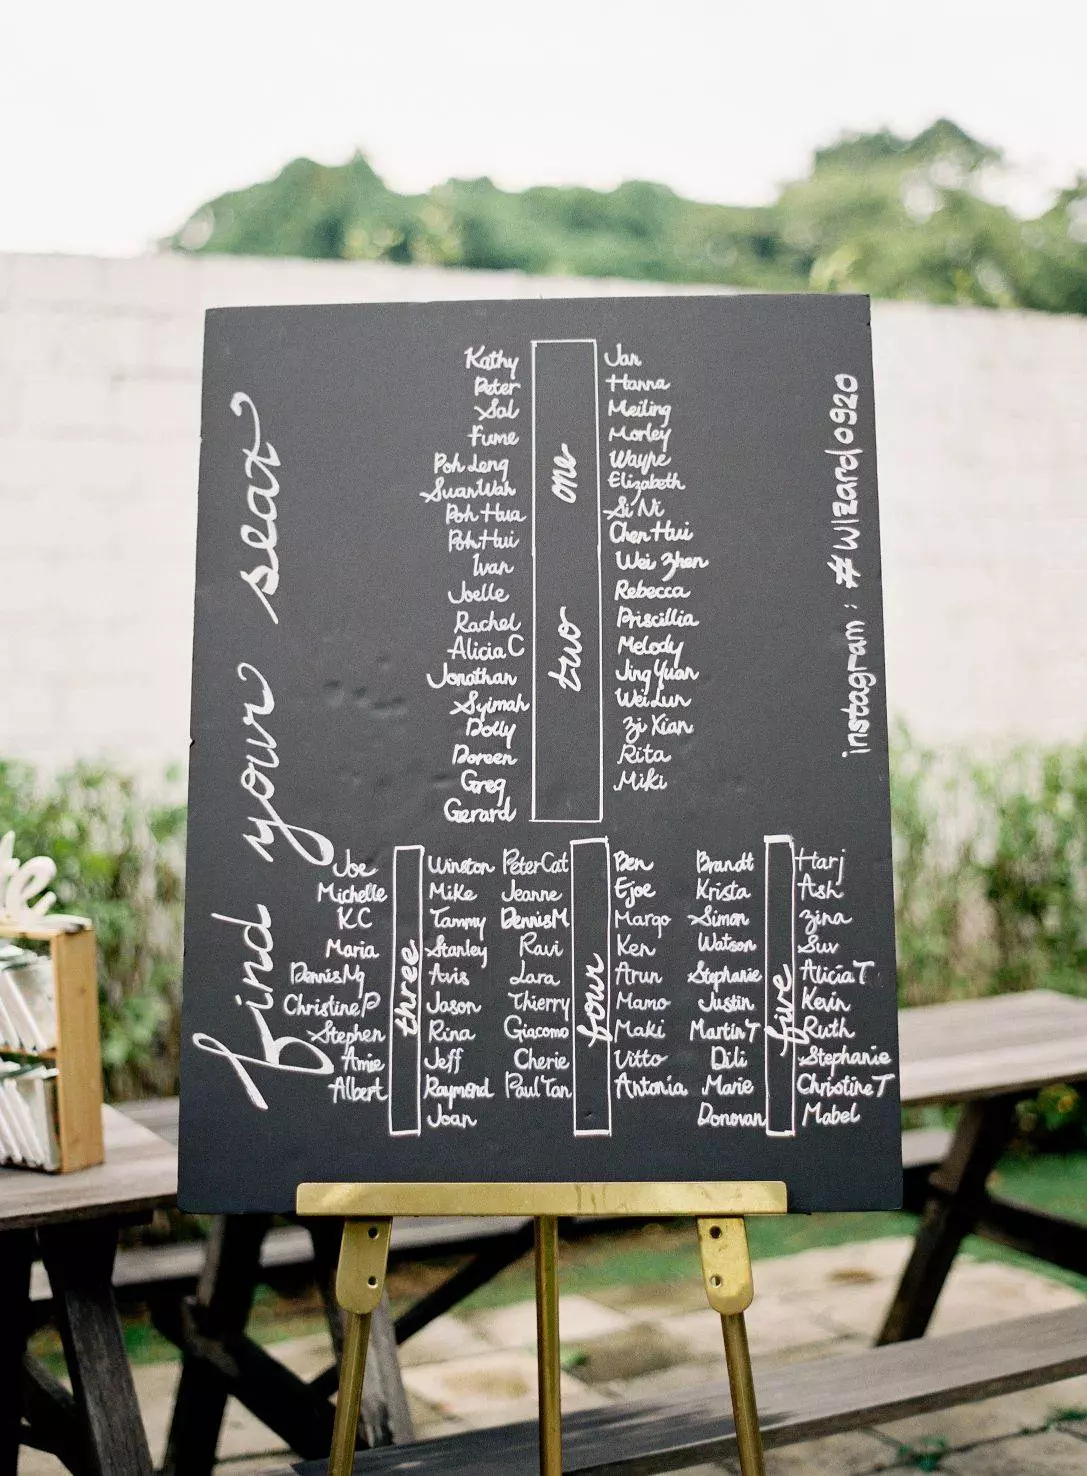 find your seat
Kathy
Peter
Sal
Fume
Poh Leng
SuanWah
Poh Hua
Poh Hui
Ivan
Joelle
Rachel
Alicia C
Jonathan
Syimah
Dolly
Doreen
Greg
Gerard
one
two
Jan
Hanna
Meiling
Morley
Wayne
Elizabeth
Si Ni
Chen Hui
Wei Zhen
Rebecca
Priscillia
Melody
Jing Yuan
Wei Lun
Zi Xian
Rita
Miki
Joe
Michelle
K.C
Maria
Dennis Ng
Christine P
Stephen
Amie
Albert
three
Winston
Mike
Tammy
Stanley
Avis
Jason
Rina
Jeff
Raymond
Joan
PeterCat
Jeanne
DennisM
Ravi
Lara
Thierry
Giacomo
Cherie
Paul Tan
four
Ben
Ejoe
Margo
Ken
Arun
Mamo
Maki
Vitto
Antonia
Brandt
Krista
Simon
Watson
Stephanie
Justin
Martin T
Dili
Marie
Donovan
five
Harj
Ash
Zina
Suv
Alicia T
Kevin
Ruth
Stephanie
Christine T
Mabel
instagram : #wizard0920